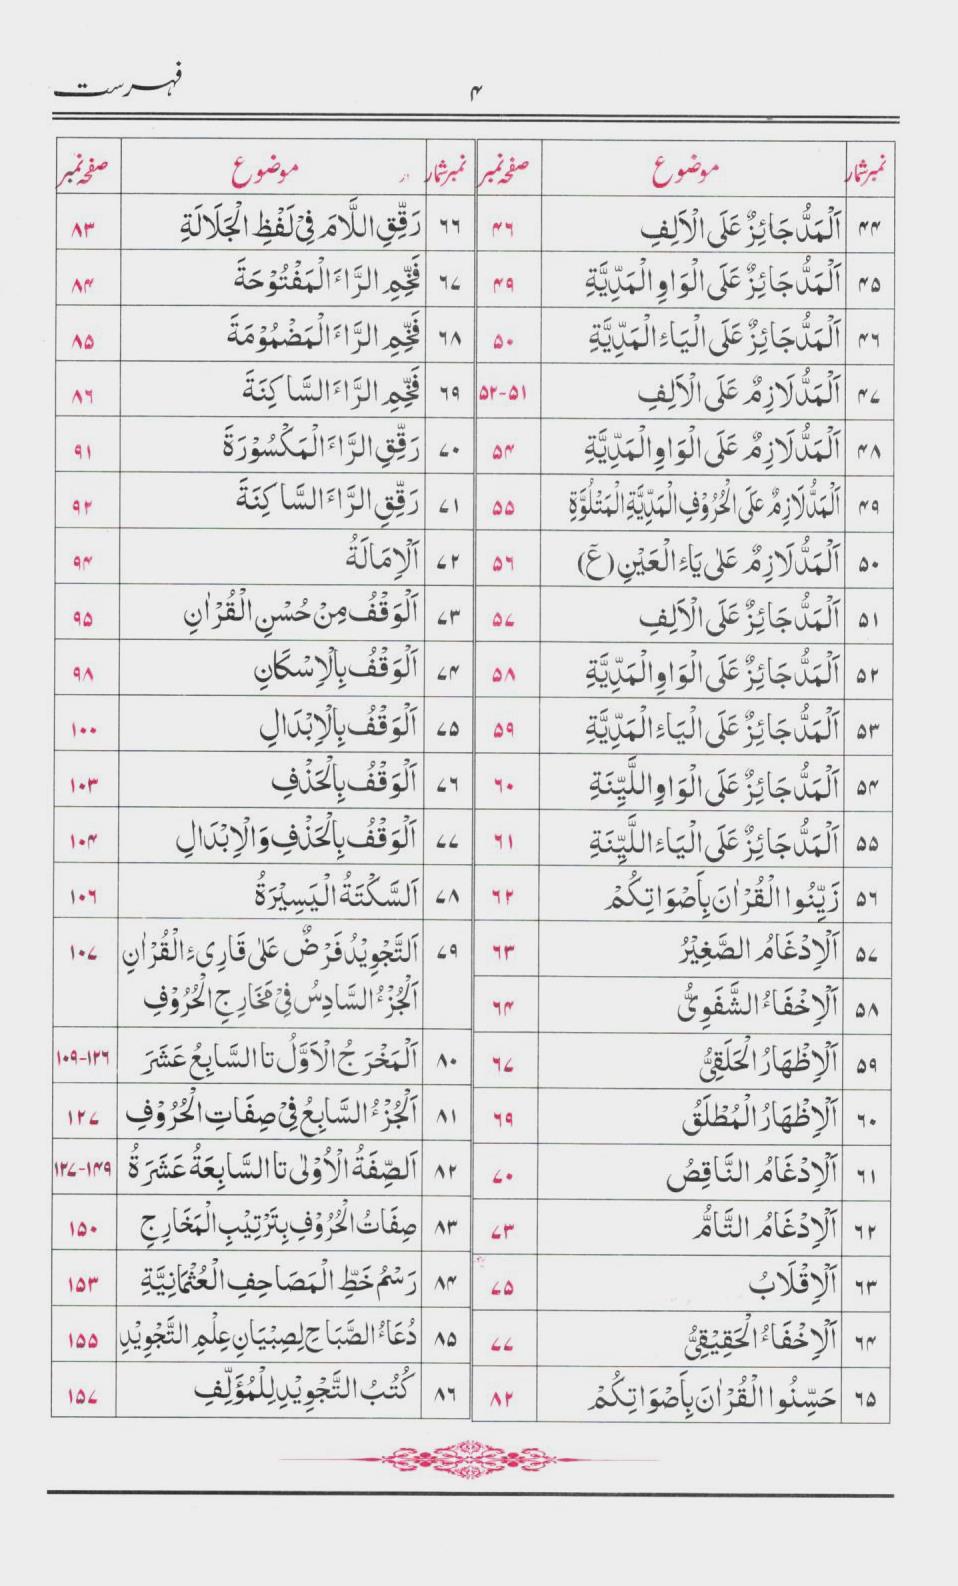 فہرست
۴
نمبر شمار موضوع صفحہ نمبر
۴۴ اَلْمَدُّ جَائِزٌ عَلَى الْاَلِفِ ۴۶
۴۵ اَلْمَدُّ جَائِزٌ عَلَى الْوَاوِ الْمَدِّيَّةِ ۴۹
۴۶ اَلْمَدُّ جَائِزٌ عَلَى الْيَاءِ الْمَدِّيَّةِ ۵۰
۴۷ اَلْمَدُّ لَازِمٌ عَلَى الْاَلِفِ ۵۱-۵۲
۴۸ اَلْمَدُّ لَازِمٌ عَلَى الْوَاوِ الْمَدِّيَّةِ ۵۴
۴۹ اَلْمَدُّ لَازِمٌ عَلَى الْحُرُوْفِ الْمَدِّيَّةِ الْمَتْلُوَّةِ ۵۵
۵۰ اَلْمَدُّ لَازِمٌ عَلٰى يَاءِ الْعَيْنِ (عٓ) ۵۶
۵۱ اَلْمَدُّ جَائِزٌ عَلَى الْاَلِفِ ۵۷
۵۲ اَلْمَدُّ جَائِزٌ عَلَى الْوَاوِ الْمَدِّيَّةِ ۵۸
۵۳ اَلْمَدُّ جَائِزٌ عَلَى الْيَاءِ الْمَدِّيَّةِ ۵۹
۵۴ اَلْمَدُّ جَائِزٌ عَلَى الْوَاوِ اللَّيِّنَةِ ۶۰
۵۵ اَلْمَدُّ جَائِزٌ عَلَى الْيَاءِ اللَّيِّنَةِ ۶۱
۵۶ زَيِّنُوا الْقُرْاٰنَ بِاَصْوَاتِكُمْ ۶۲
۵۷ اَلْاِدْغَامُ الصَّغِيْرُ ۶۳
۵۸ اَلْاِخْفَاءُ الشَّفَوِىُّ ۶۴
۵۹ اَلْاِظْهَارُ الْحَلَقِىُّ ۶۷
۶۰ اَلْاِظْهَارُ الْمُطْلَقُ ۶۹
۶۱ اَلْاِدْغَامُ النَّاقِصُ ۷۰
۶۲ اَلْاِدْغَامُ التَّامُّ ۷۳
۶۳ اَلْاِقْلَابُ ۷۵
۶۴ اَلْاِخْفَاءُ الْحَقِيْقِىُّ ۷۷
۶۵ حَسِّنُوا الْقُرْاٰنَ بِاَصْوَاتِكُمْ ۸۲
نمبر شمار موضوع صفحہ نمبر
۶۶ رَقِّقِ اللَّامَ فِىْ لَفْظِ الْجَلَالَةِ ۸۳
۶۷ فَخِّمِ الرَّاءَ الْمَفْتُوْحَةَ ۸۴
۶۸ فَخِّمِ الرَّاءَ الْمَضْمُوْمَةَ ۸۵
۶۹ فَخِّمِ الرَّاءَ السَّاكِنَةَ ۸۶
۷۰ رَقِّقِ الرَّاءَ الْمَكْسُوْرَةَ ۹۱
۷۱ رَقِّقِ الرَّاءَ السَّاكِنَةَ ۹۲
۷۲ اَلْاِمَالَةُ ۹۴
۷۳ اَلْوَقْفُ مِنْ حُسْنِ الْقُرْاٰنِ ۹۵
۷۴ اَلْوَقْفُ بِالْاِسْكَانِ ۹۸
۷۵ اَلْوَقْفُ بِالْاِبْدَالِ ۱۰۰
۷۶ اَلْوَقْفُ بِالْحَذْفِ ۱۰۳
۷۷ اَلْوَقْفُ بِالْحَذْفِ وَالْاِبْدَالِ ۱۰۴
۷۸ اَلسَّكْتَةُ الْيَسِيْرَةُ ۱۰۶
۷۹ اَلتَّجْوِيْدُ فَرْضٌ عَلٰى قَارِىءِ الْقُرْاٰنِ ۱۰۷
اَلْجُزْءُ السَّادِسُ فِىْ مَخَارِجِ الْحُرُوْفِ
۸۰ اَلْمَخْرَجُ الْاَوَّلُ تا السَّابِعُ عَشَرَ ۱۰۹-۱۲۶
۸۱ اَلْجُزْءُ السَّابِعُ فِىْ صِفَاتِ الْحُرُوْفِ ۱۲۷
۸۲ اَلصِّفَةُ الْاُوْلٰى تا السَّابِعَةُ عَشَرَةُ ۱۲۷-۱۴۹
۸۳ صِفَاتُ الْحُرُوْفِ بِتَرْتِيْبِ الْمَخَارِجِ ۱۵۰
۸۴ رَسْمُ خَطِّ الْمَصَاحِفِ الْعُثْمَانِيَّةِ ۱۵۳
۸۵ دُعَاءُ الصَّبَاحِ لِصِبْيَانِ عِلْمِ التَّجْوِيْدِ ۱۵۵
۸۶ كُتُبُ التَّجْوِيْدِ لِلْمُؤَلِّفِ ۱۵۷